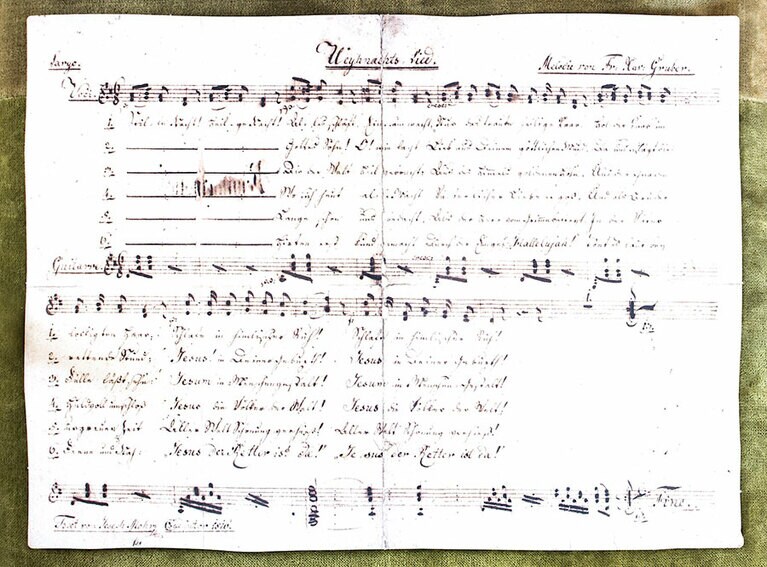 Largo. Weyhnachts-Lied. Melodie von Fr. Xav. Gruber.
1. Stille Nacht! Heilige Nacht! Alles schläft. Einsam wacht. Nur das traute heilige Paar. Holder Knab im
2. Gottes Sohn! O! wie lacht Lieb' aus Deinem göttlichen Mund, Da uns schlägt die
3. Die der Welt Heil gebracht, Aus des Himmels goldenen Höhn, Uns der Gnaden
4. Wo sich heut alle Macht Väterlicher Liebe ergoß, Und als Bruder
5. Lange schon uns bedacht, Als der Herr vom Grimme befreyt In der Väter
6. Hirten erst kundgemacht Durch der Engel Halleluja! Tönt es laut von
Guitarre.
1. lockigten Haar; Schlafe in himmlischer Ruh! Schlafe in himmlischer Ruh!
2. rettende Stund: Jesus! in Deiner Geburth! Jesus in Deiner Geburth!
3. Fülle läßt sehn: Jesum in Menschengestalt! Jesum in Menschengestalt!
4. Huldvoll umschloß Jesus die Völker der Welt! Jesus die Völker der Welt!
5. urgrauer Zeit Aller Welt Schonung verhieß! Aller Welt Schonung verhieß!
6. Ferne und Nah: Jesus der Retter ist da! Jesus der Retter ist da!
Fine.
Text von Joseph Mohr Coadjutor 1816.